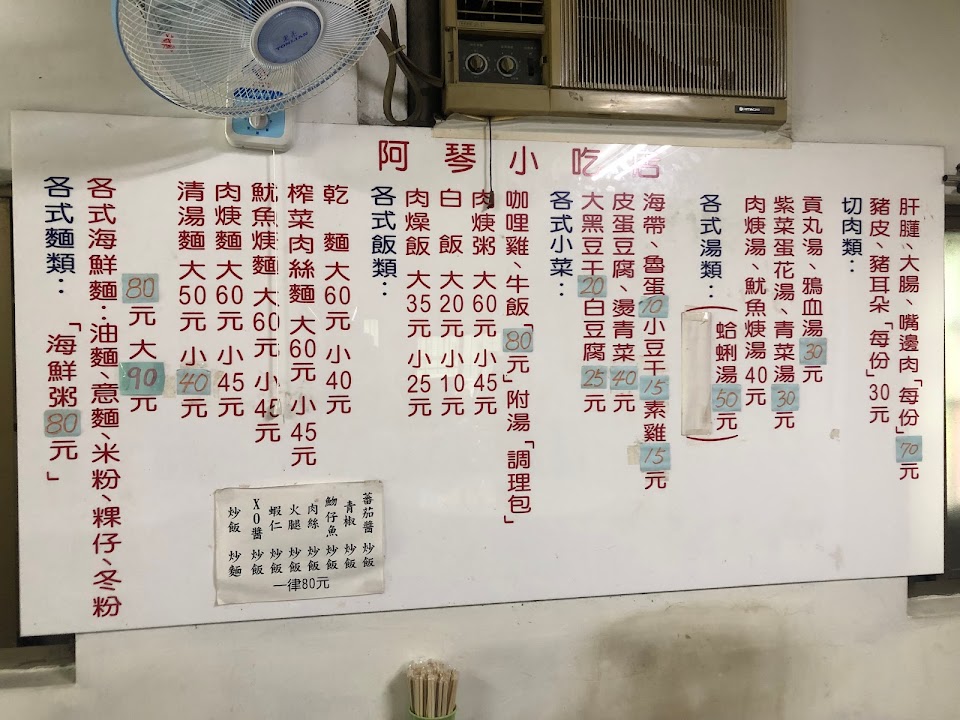 阿琴小吃店
各式麵類：
「海鮮粥80元」
各式海鮮麵：油麵、意麵、米粉、粿仔、冬粉
80元 大90元
清湯麵 大50元 小40元
肉焿麵 大60元 小45元
魷魚焿麵 大60元 小45元
榨菜肉絲麵 大60元 小45元
乾麵 大60元 小40元
各式飯類：
肉燥飯 大35元 小25元
白飯 大20元 小10元
肉焿粥 大60元 小45元
咖哩雞、牛飯「80元」附湯「調理包」
各式小菜：
大黑豆干20白豆腐25元
皮蛋豆腐、燙青菜40元
海帶、魯蛋10小豆干15素雞15元
各式湯類：
（蛤蜊湯50元）
肉焿湯、魷魚焿湯40元
紫菜蛋花湯、青菜湯30元
貢丸湯、鴉血湯30元
切肉類：
豬皮、豬耳朵「每份」30元
肝腱、大腸、嘴邊肉「每份」70元
蕃茄醬炒飯
青椒炒飯
魩仔魚炒飯
肉絲炒飯
火腿炒飯
蝦仁炒飯
XO醬炒飯
炒飯 炒麵
一律80元
HITACHI